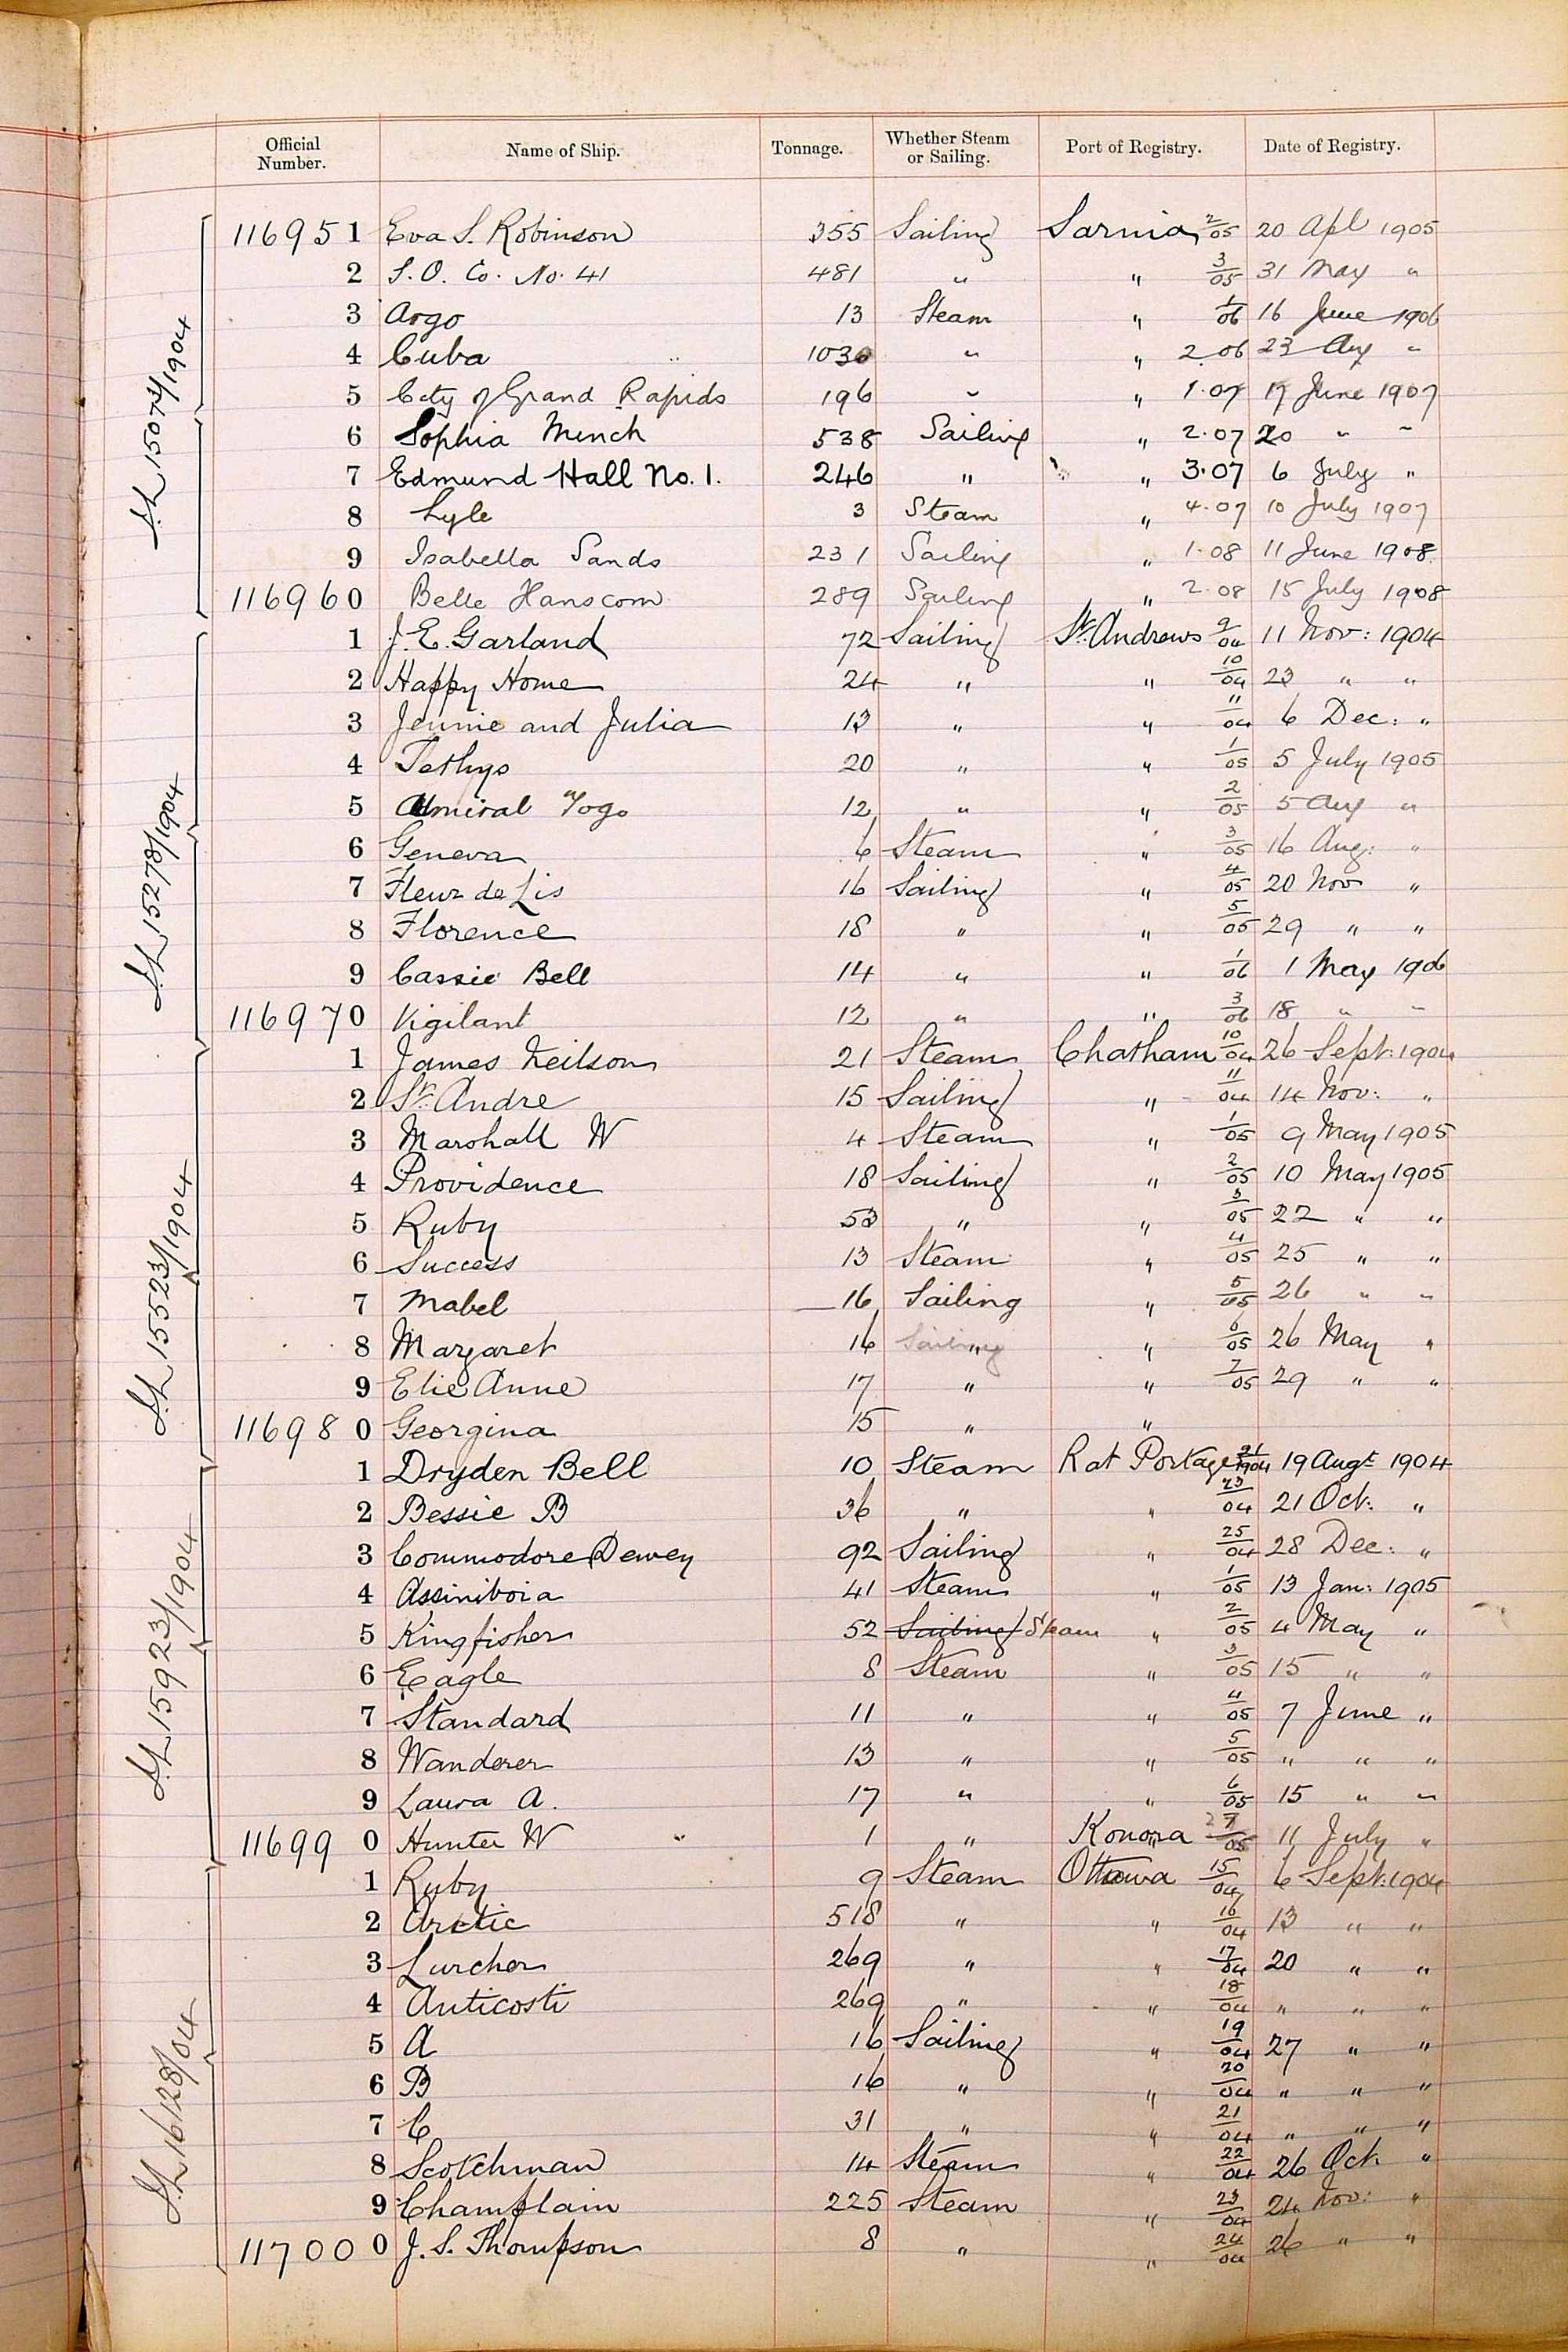 Official Number. Name of Ship. Tonnage. Whether Steam or Sailing. Port of Registry. Date of Registry.
116951 Eva S. Robinson 355 Sailing Sarnia 2/05 20 Apl 1905
2 S. O. Co. No. 41 481 " " 3/05 31 May "
3 Argo 13 Steam " 1/06 16 June 1906
4 Cuba 1030 " " 2.06 23 Aug "
5 City of Grand Rapids 196 " " 1.07 17 June 1907
6 Sophia Minch 538 Sailing " 2.07 20 " "
7 Edmund Hall No. 1. 246 " " 3.07 6 July "
8 Lyle 3 Steam " 4.07 10 July 1907
9 Isabella Sands 231 Sailing " 1.08 11 June 1908
116960 Belle Hanscom 289 Sailing " 2.08 15 July 1908
1 J. E. Garland 72 Sailing St. Andrews 9/04 11 Nov: 1904
2 Happy Home 24 " " 10/04 23 " "
3 Jennie and Julia 13 " " 11/04 6 Dec: "
4 Tethys 20 " " 1/05 5 July 1905
5 Admiral Togo 12 " " 2/05 5 Aug "
6 Geneva 6 Steam " 3/05 16 Aug: "
7 Fleur de Lis 16 Sailing " 4/05 20 Nov "
8 Florence 18 " " 5/05 29 " "
9 Cassie Bell 14 " " 1/06 1 May 1906
116970 Vigilant 12 " " 3/06 18 " "
1 James Neilson 21 Steam Chatham 10/04 26 Sept: 1904
2 St. Andre 15 Sailing " 11/04 14 Nov: "
3 Marshall W 4 Steam " 1/05 9 May 1905
4 Providence 18 Sailing " 2/05 10 May 1905
5 Ruby 53 " " 3/05 22 " "
6 Success 13 Steam " 4/05 25 " "
7 Mabel 16 Sailing " 5/05 26 " "
8 Margaret 16 Sailing " " 6/05 26 May "
9 Elie Anne 17 " " 7/05 29 " "
116980 Georgina 15 " "
1 Dryden Bell 10 Steam Rat Portage 21/1904 19 Augt 1904
2 Bessie B 36 " " 23/04 21 Oct: "
3 Commodore Dewey 92 Sailing " 25/04 28 Dec: "
4 Assiniboia 41 Steam " 1/05 13 Jan: 1905
5 Kingfisher 52 Sailing Steam " 2/05 4 May "
6 Eagle 8 Steam " 3/05 15 " "
7 Standard 11 " " 4/05 7 June "
8 Wanderer 13 " " 5/05 " " "
9 Laura A. 17 " " 6/05 15 " "
116990 Hunter W 1 " Konora " 7/05 11 July "
1 Ruby 9 Steam Ottawa 15/04 6 Sept: 1904
2 Arctic 518 " " 16/04 13 " "
3 Lurcher 269 " " 17/04 20 " "
4 Anticosti 269 " " 18/04 " " "
5 A 16 Sailing " 19/04 27 " "
6 B 16 " " 20/04 " " "
7 C 31 " " 21/04 " " "
8 Scotchman 14 Steam " 22/04 26 Oct: "
9 Champlain 225 Steam " 23/04 24 Nov: "
117000 J. S. Thompson 8 " " 24/04 26 " "
15073/1904
15278/1904
15523/1904
15923/1904
16128/04